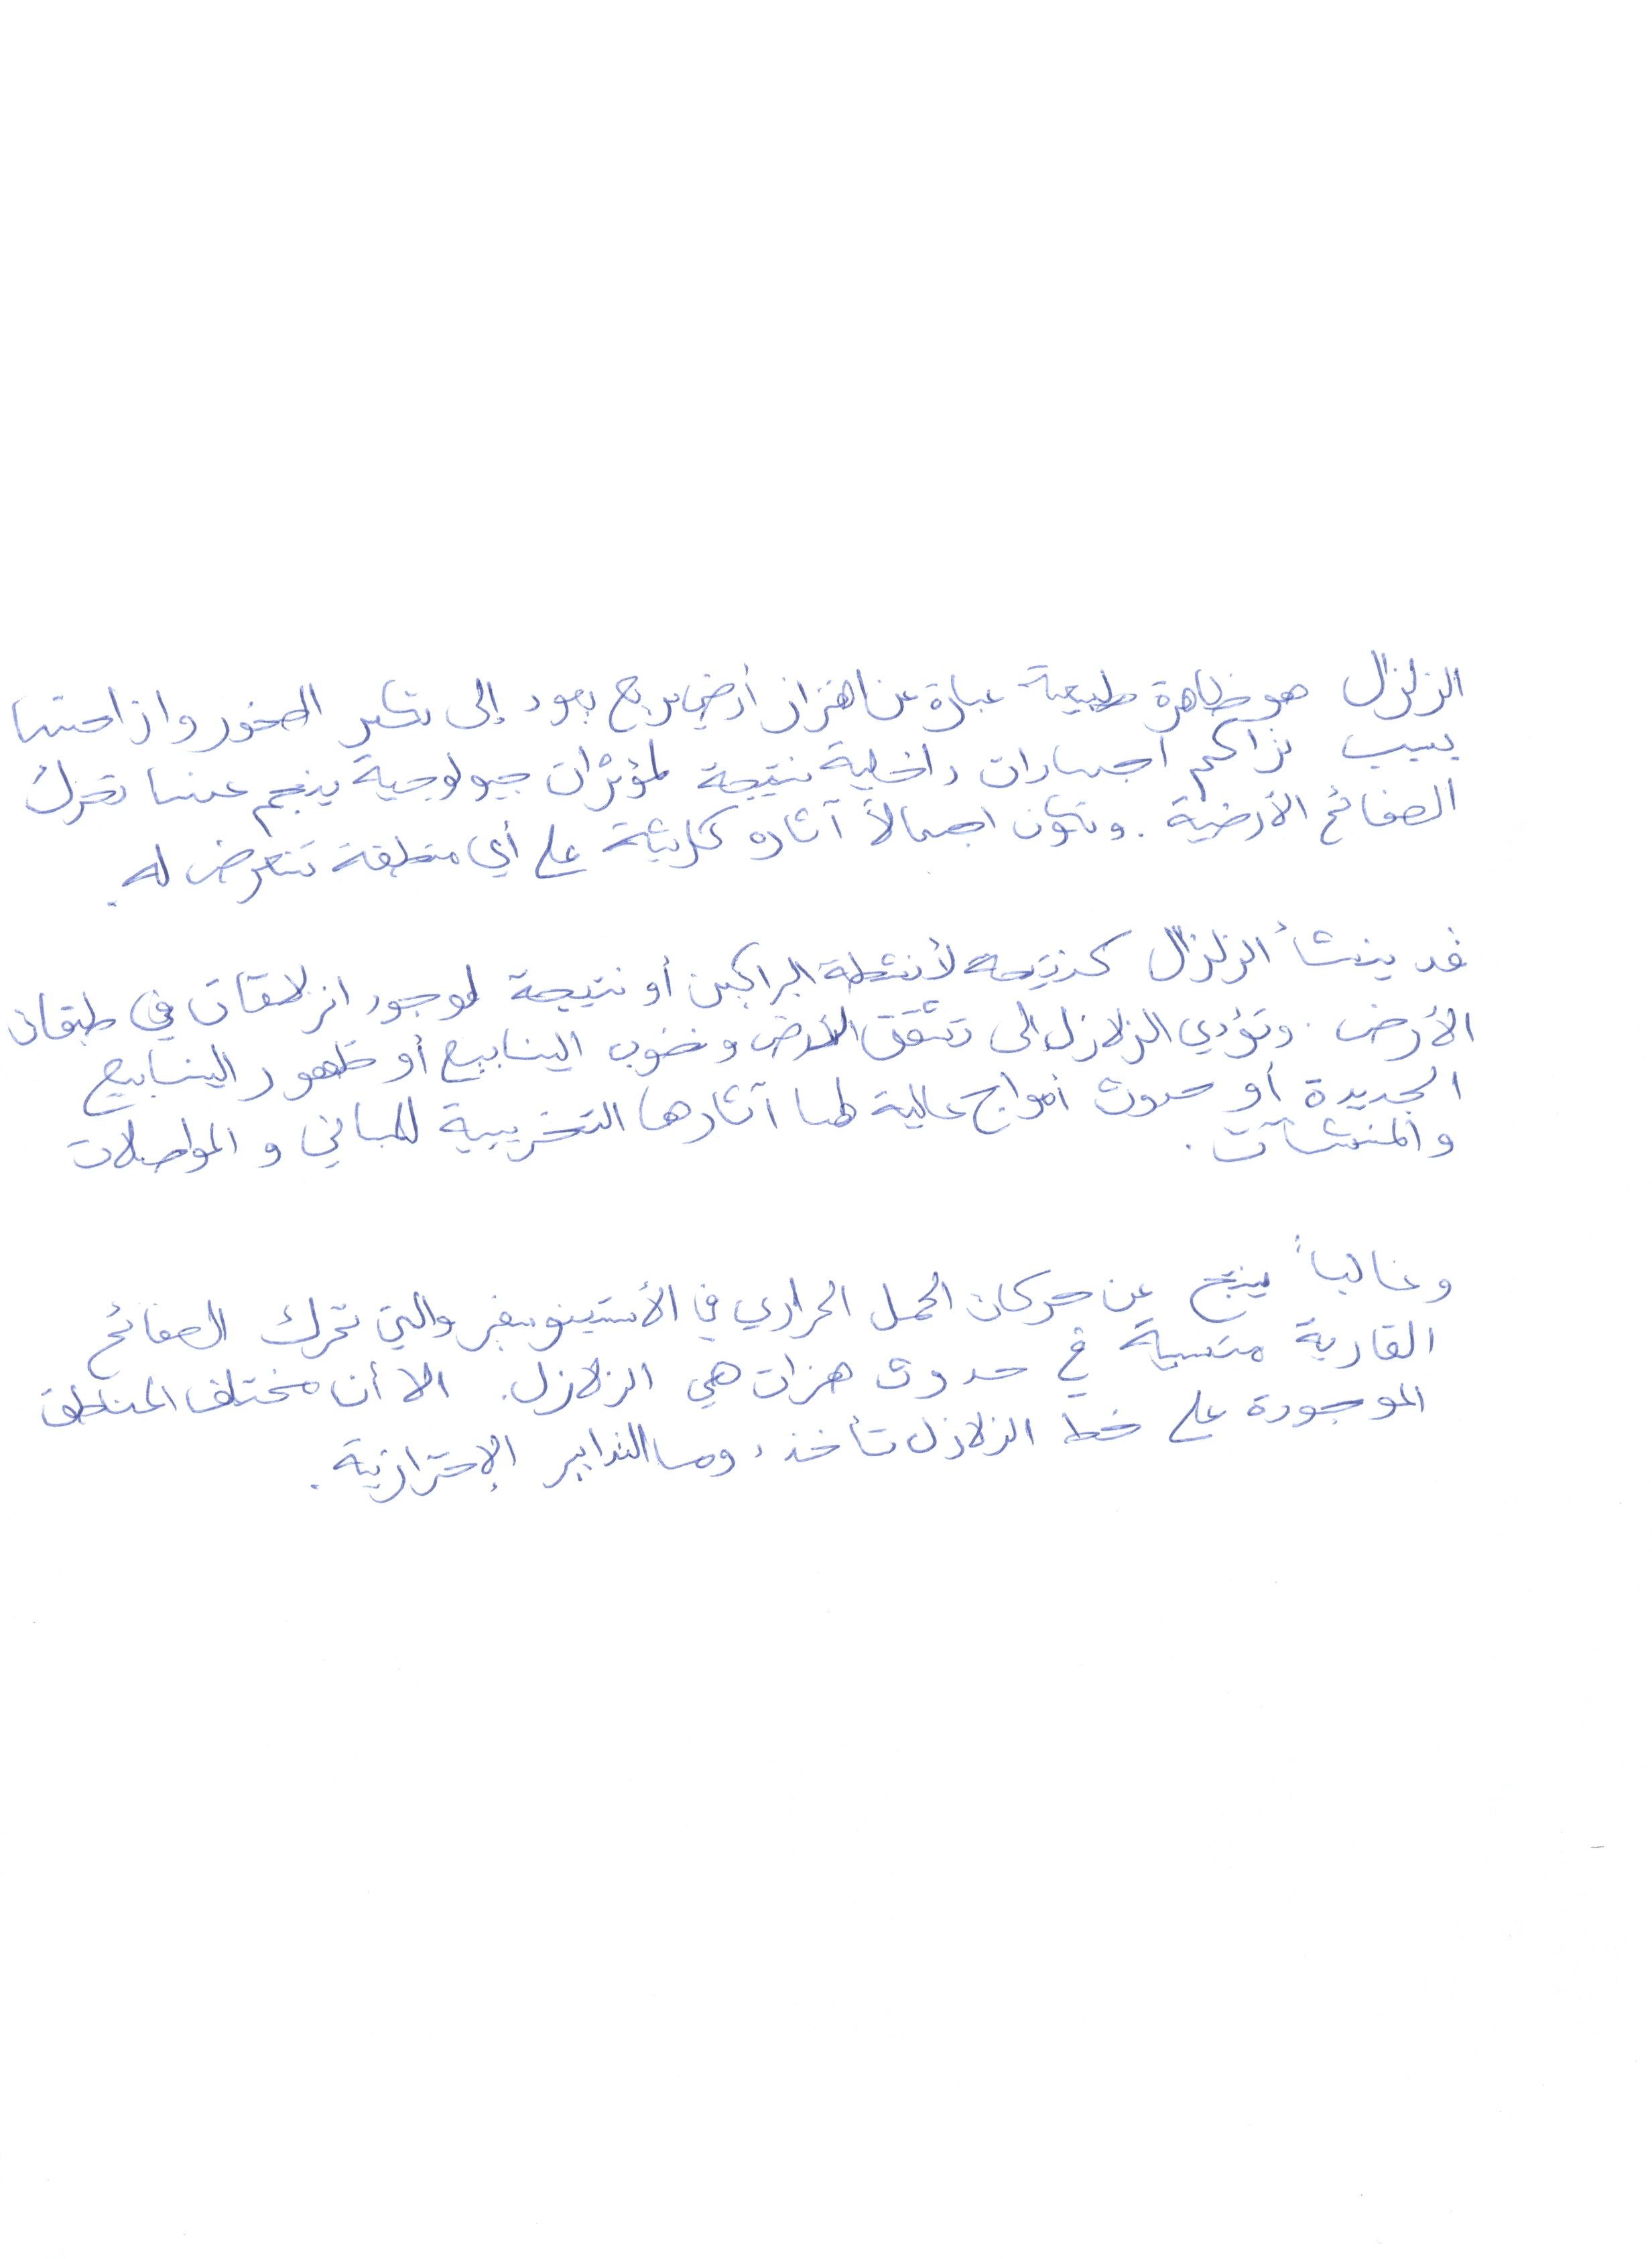 الزلزال هو ظاهرة طبيعية عبارة عن اهتزاز أرضي سريع يعود إلى تكسر الصخور وازاحتها
بسبب تراكم اجهادات داخلية نتيجة لمؤثرات جيولوجية ينجم عنها تحرك
الصفائح الأرضية. وتكون اجمالاً آثاره كارثية على أي منطقة تتعرض له.
قد ينشأ الزلزال كنتيجة لأنشطة البراكين أو نتيجة لوجود انزلاقات في طبقات
الأرض. وتؤدي الزلازل الى تشقق الأرض ونضوب الينابيع أو ظهور الينابيع
الجديدة أو حدوث أمواج عالية لها آثارها التخريبية للمباني و المواصلات
والمنشآت.
وغالباً ينتج عن حركات الحمل الحراري في الأستينوسفير والتي تحرك الصفائح
القارية متسببة في حدوث هزات هي الزلازل. الا أن مختلف المناطق
الموجودة على خط الزلازل تأخذ دوما التدابير الإحترازية.